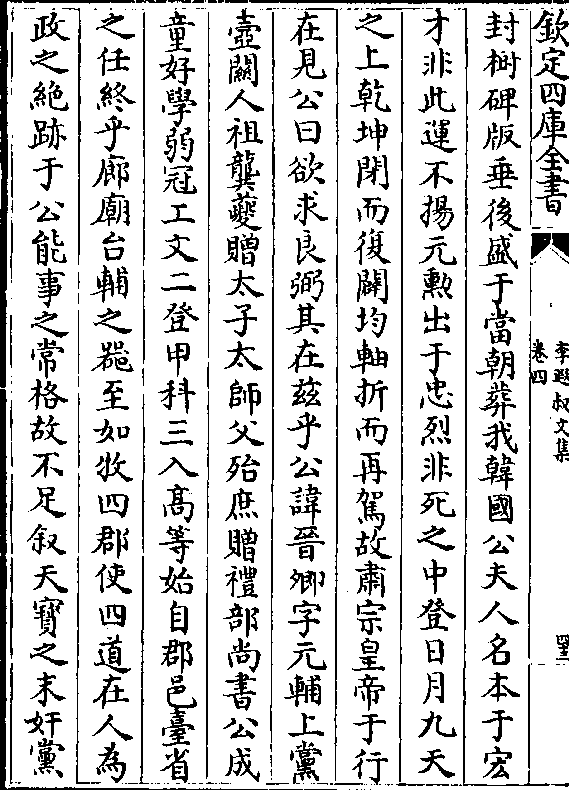 欽定四庫全書
李遐叔文集
卷四
封樹碑版垂後盛于當朝葬我韓國公夫人名本于宏
才非此運不揚元勲出于忠烈非死之中登日月九天
之上乾坤閉而復闢均軸折而再駕故肅宗皇帝于行
在見公曰欲求良弼其在兹乎公諱晉卿字元輔上黨
壺關人祖龔夔贈太子太師父殆庶贈禮部尚書公成
童好學弱冠工文二登甲科三入髙等始自郡邑臺省
之任終乎廊廟台輔之器至如牧四郡使四道在人為
政之絶跡于公能事之常格故不足叙天寳之末奸黨